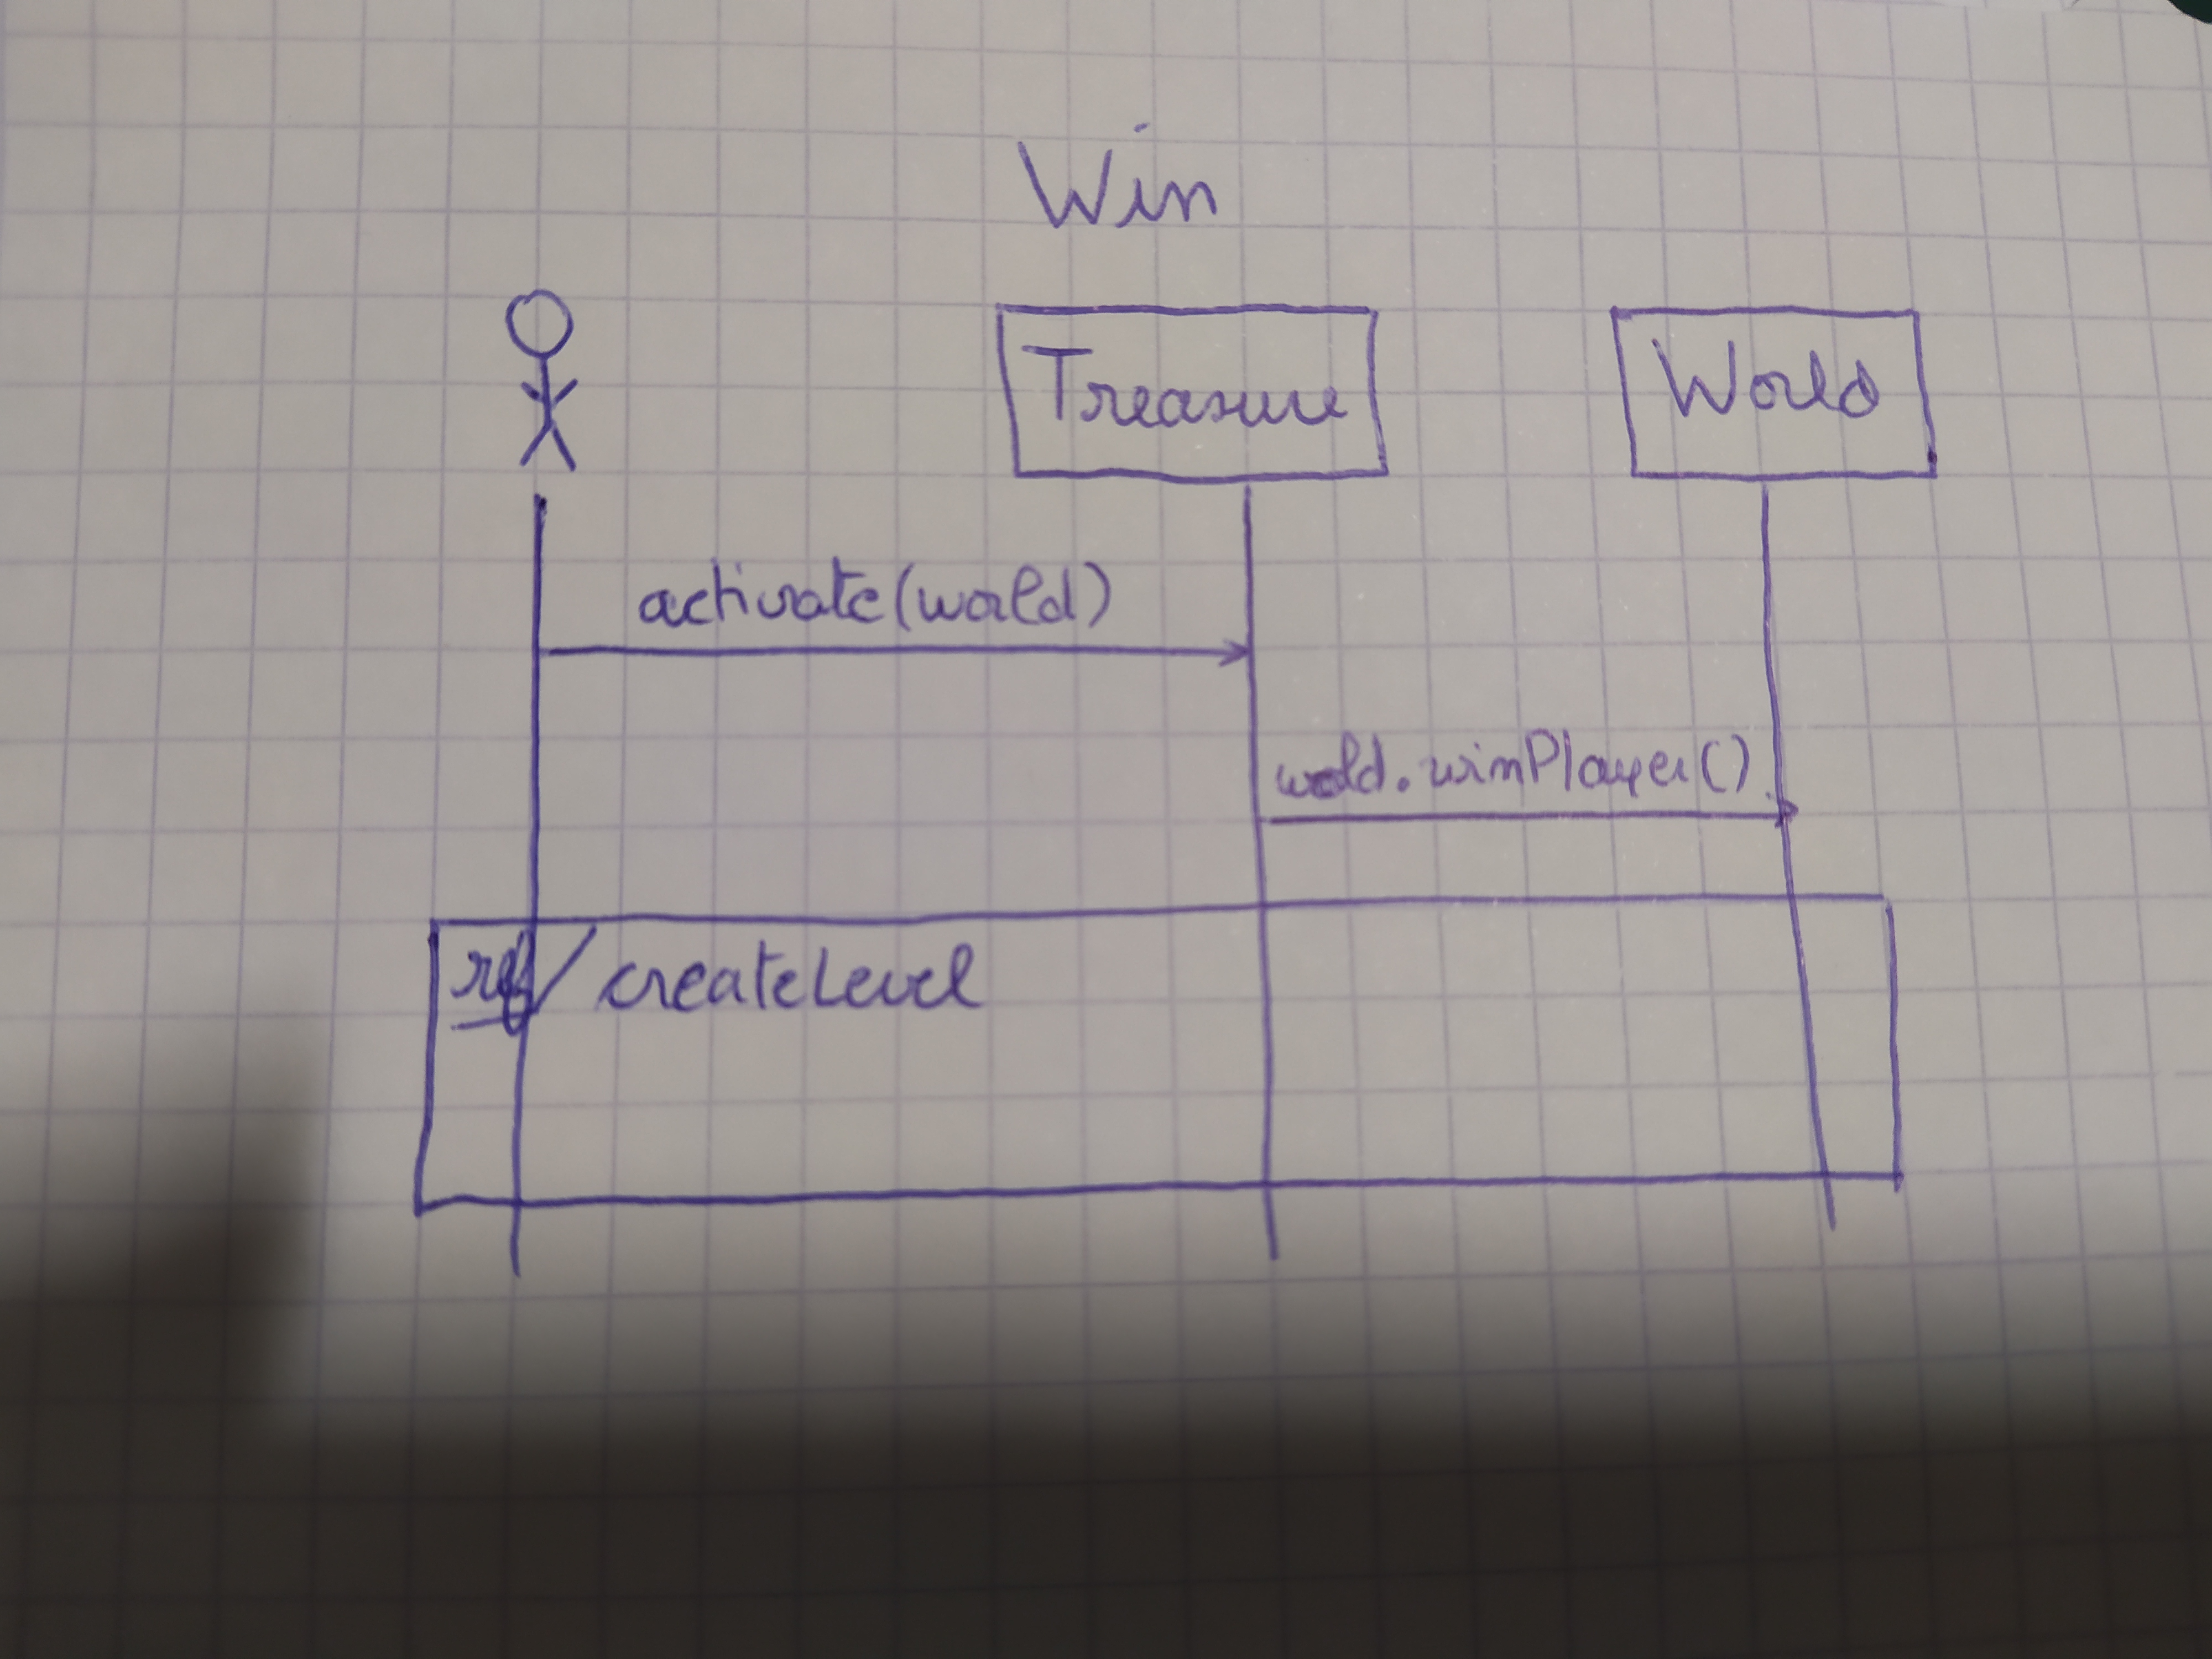 Win
Treasure
World
activate(world)
world.winPlayer()
ref
createLevel